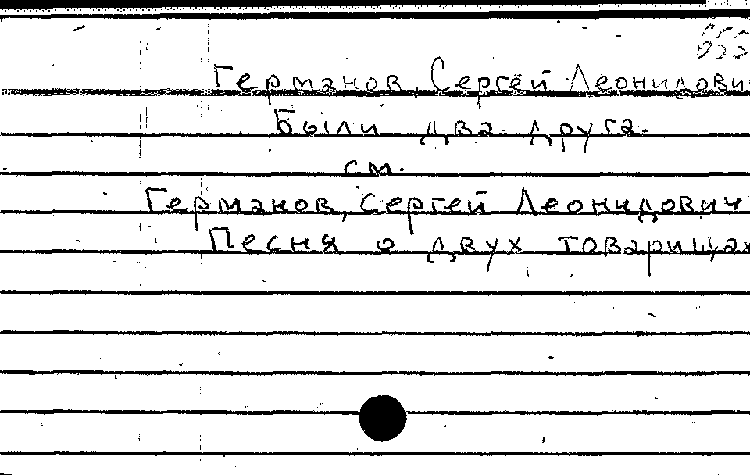 Германов, Сергей Леонидович
Были два друга.
см.
Германов, Сергей Леонидович
Песня о двух товарищах